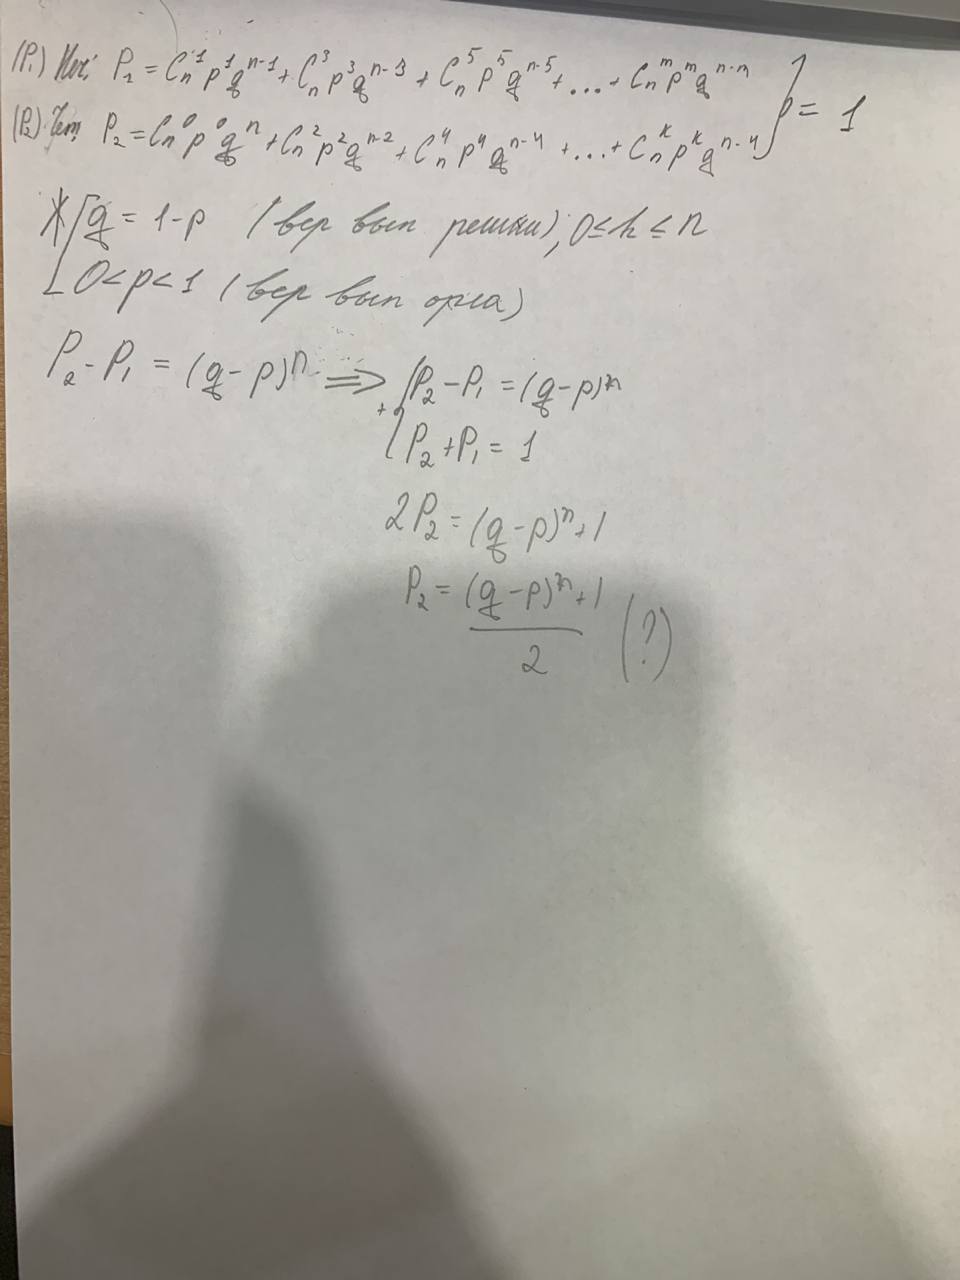 (P₁) Неч; P₁ = Cₙ¹p¹qⁿ⁻¹ + Cₙ³p³qⁿ⁻³ + Cₙ⁵p⁵qⁿ⁻⁵ + ... + Cₙᵐpᵐqⁿ⁻ᵐ
(P₂) Чет; P₂ = Cₙ⁰p⁰qⁿ + Cₙ²p²qⁿ⁻² + Cₙ⁴p⁴qⁿ⁻⁴ + ... + Cₙᵏpᵏqⁿ⁻⁴ } p = 1
* [ q = 1-p (вер вып решки), 0≤k≤n
0<p<1 (вер вып орла)
P₂ - P₁ = (q-p)ⁿ ⟹ { P₂ - P₁ = (q-p)ⁿ
+ { P₂ + P₁ = 1
2P₂ = (q-p)ⁿ + 1
P₂ = (q-p)ⁿ + 1 (?)
2